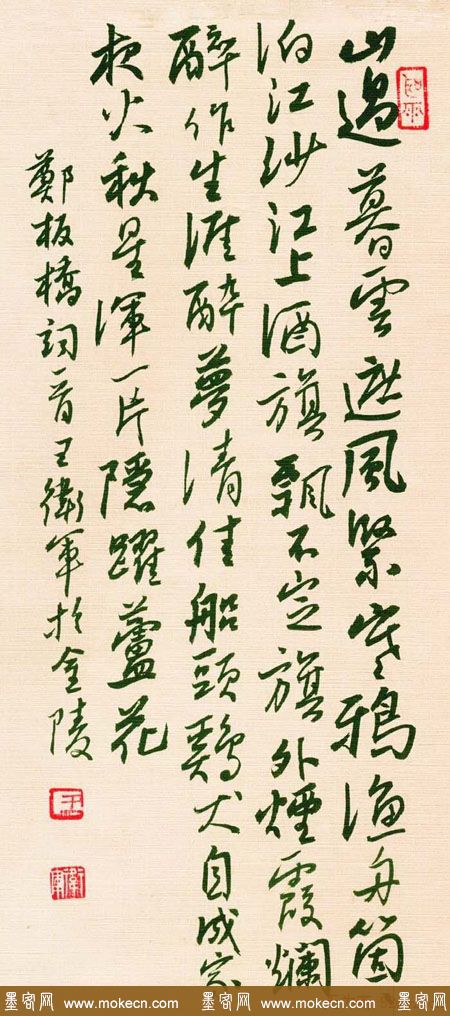 山過暮雲遮風緊寒鴉漁舟箇
泊江沙江上酒旗飄不定旗外煙霞爛
醉作生涯醉夢清佳船頭鷄犬自成家
夜火秋星渾一片隱躍蘆花
鄭板橋詞一首王衛軍於金陵
王
衛軍
墨客网 www.mokecn.com 墨客网 www.mokecn.com 墨客网 www.mokecn.com 墨客网